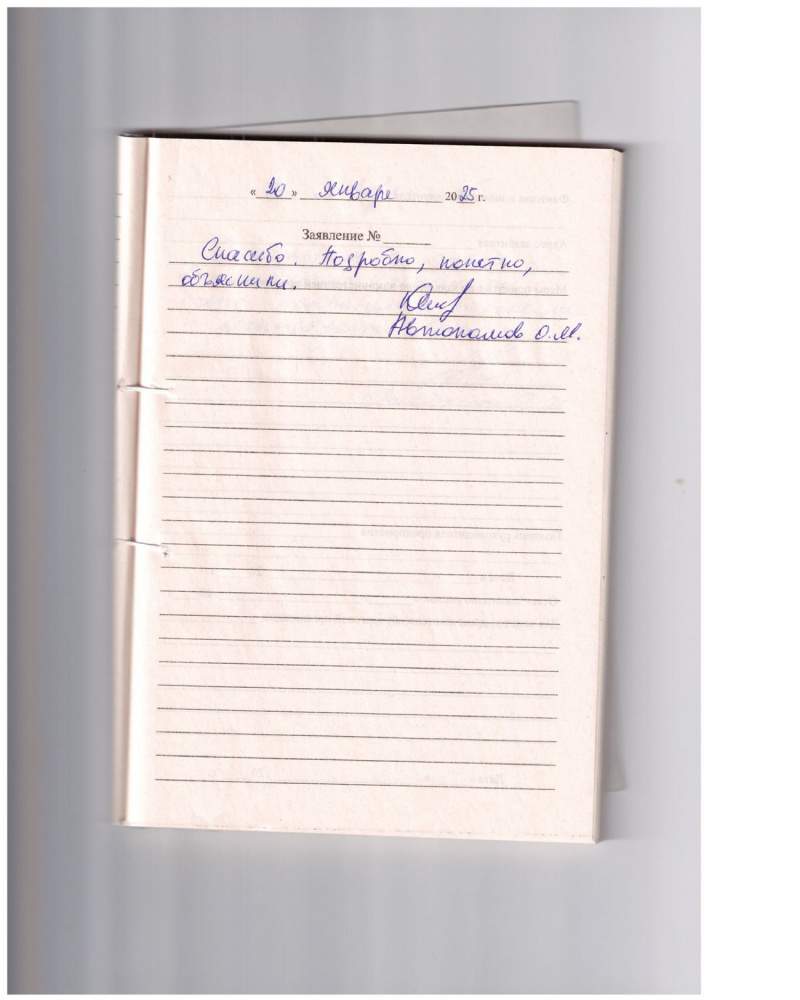 « 20 » Января 2025 г.
Заявление №
Спасибо. Подробно, понятно,
объяснили.
Автономов О.М.